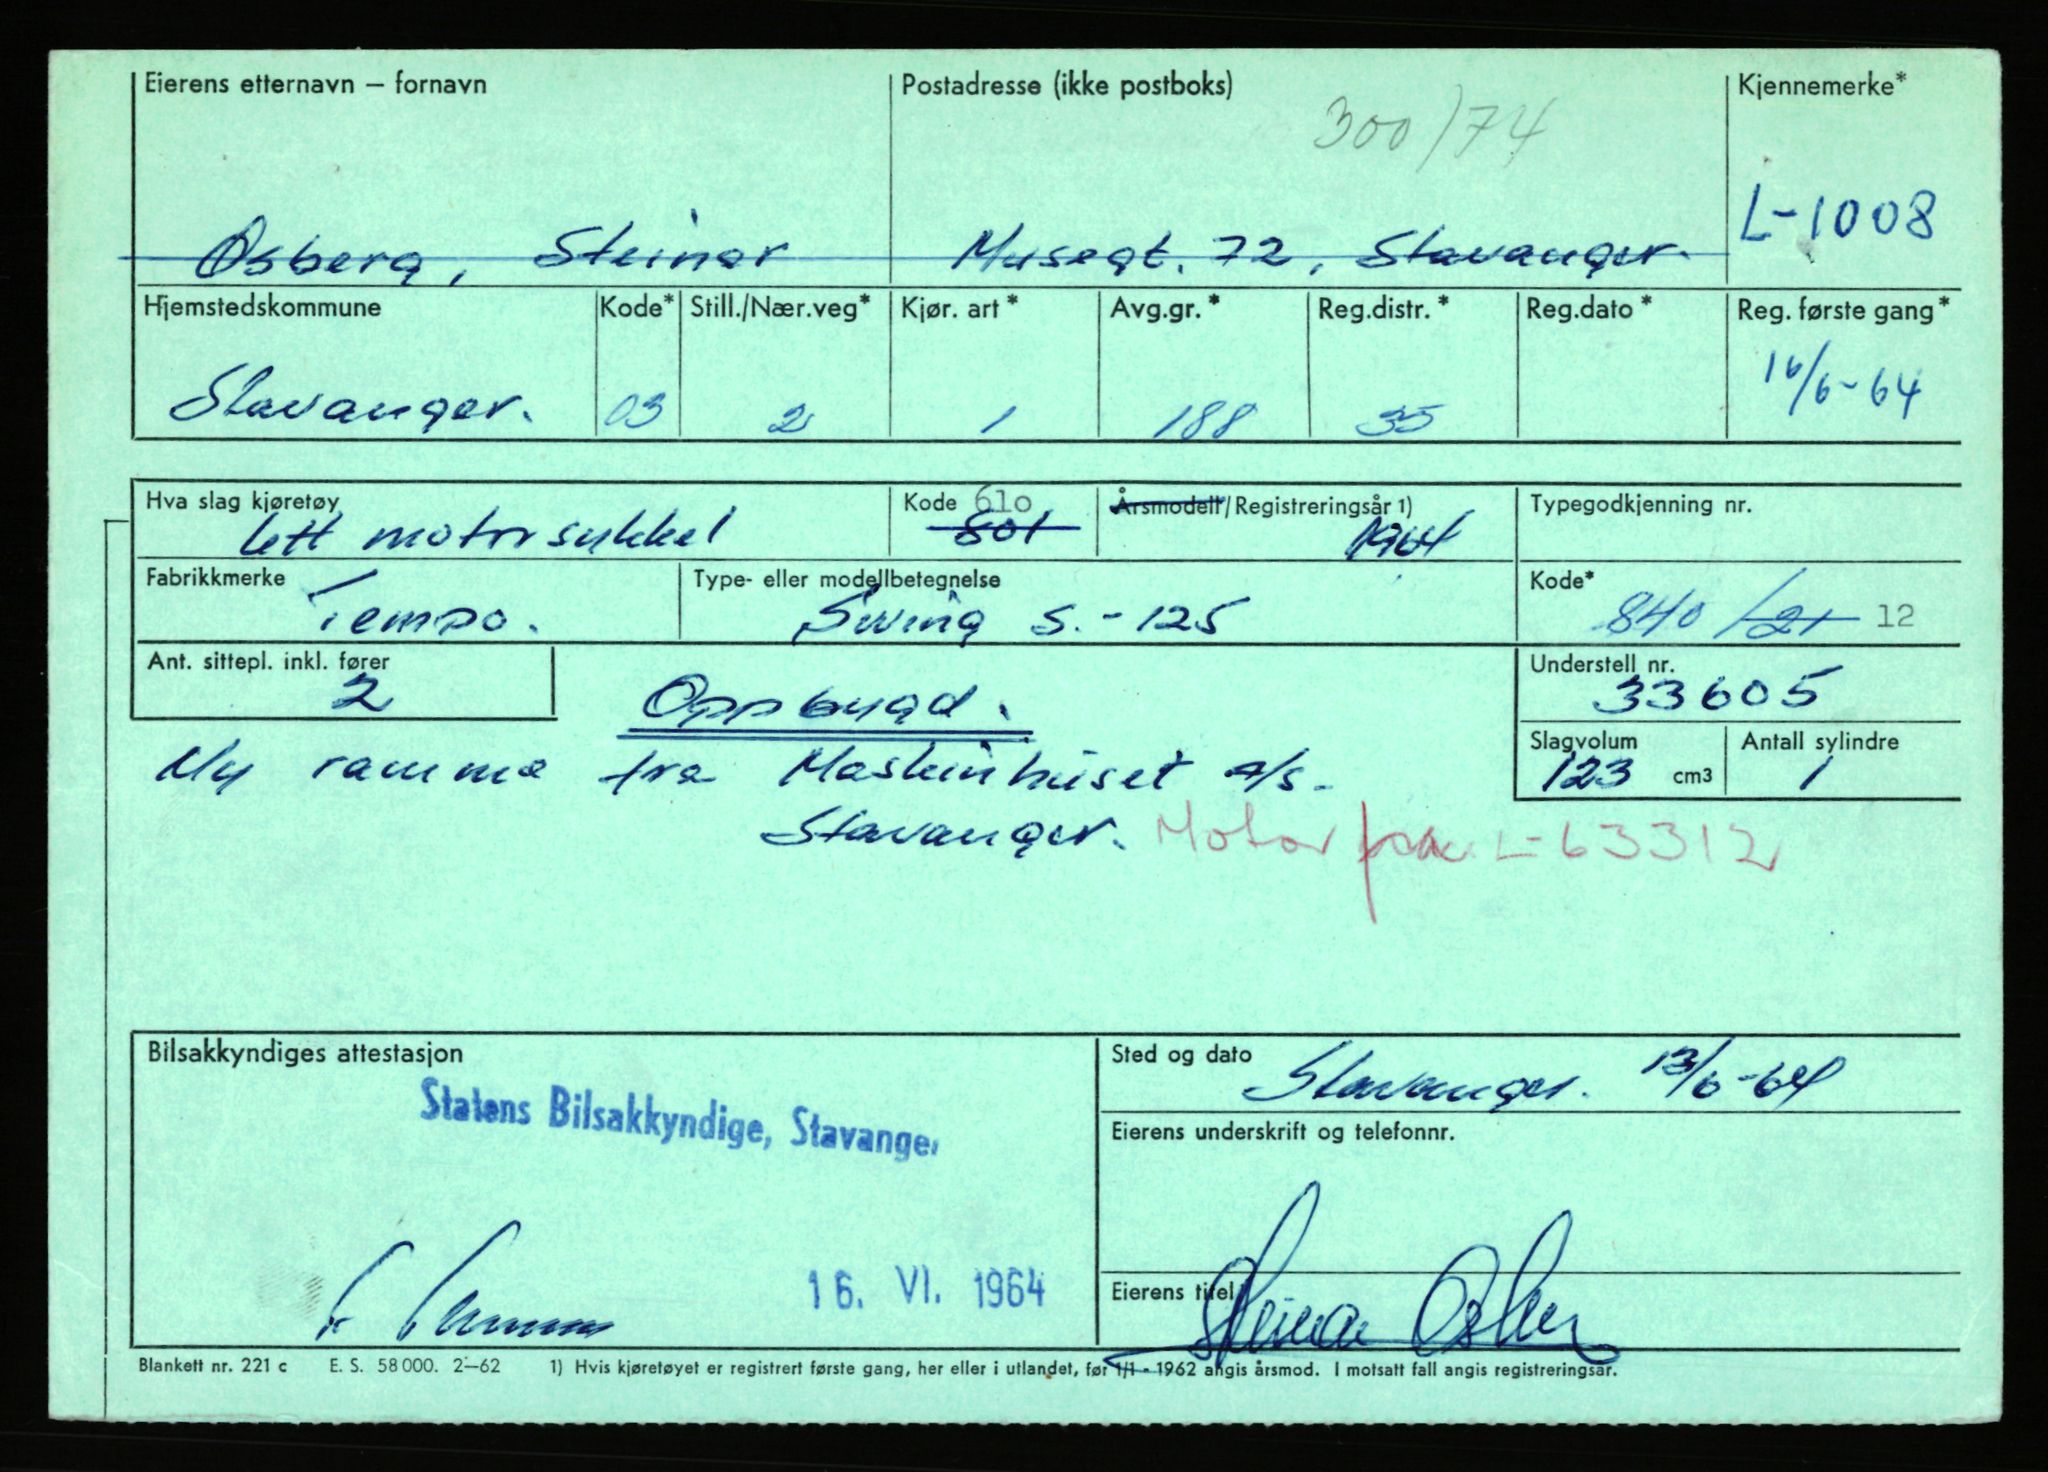 Eierens etternavn – fornavn Postadresse (ikke postboks) Kjennemerke*
300/74
L-1008
Osberg, Steinar Musegt. 72, Stavanger.
Hjemstedskommune Kode* Still./Nær.veg* Kjør. art* Avg.gr.* Reg.distr.* Reg.dato* Reg. første gang*
Stavanger. 03 2 1 188 35 16/6-64
Hva slag kjøretøy Kode 610 Årsmodell/Registreringsår 1) Typegodkjenning nr.
lett motorsykkel 801 1964
Fabrikkmerke Type- eller modellbetegnelse Kode*
Tempo. Swing S.-125 840 /21 12
Ant. sittepl. inkl. fører Understell nr.
2 Oppbygd. 33605
Slagvolum Antall sylindre
Ny ramme fra Maskinhuset A/S. 123 cm3 1
Stavanger. Motor fra L-63312
Bilsakkyndiges attestasjon Sted og dato
Stavanger. 13/6-64
Statens Bilsakkyndige, Stavanger
Eierens underskrift og telefonnr.
16. VI. 1964
Eierens titel
Steinar Osberg
Blankett nr. 221 c E. S. 58000. 2–62 1) Hvis kjøretøyet er registrert første gang, her eller i utlandet, før 1/1 - 1962 angis årsmod. I motsatt fall angis registreringsår.